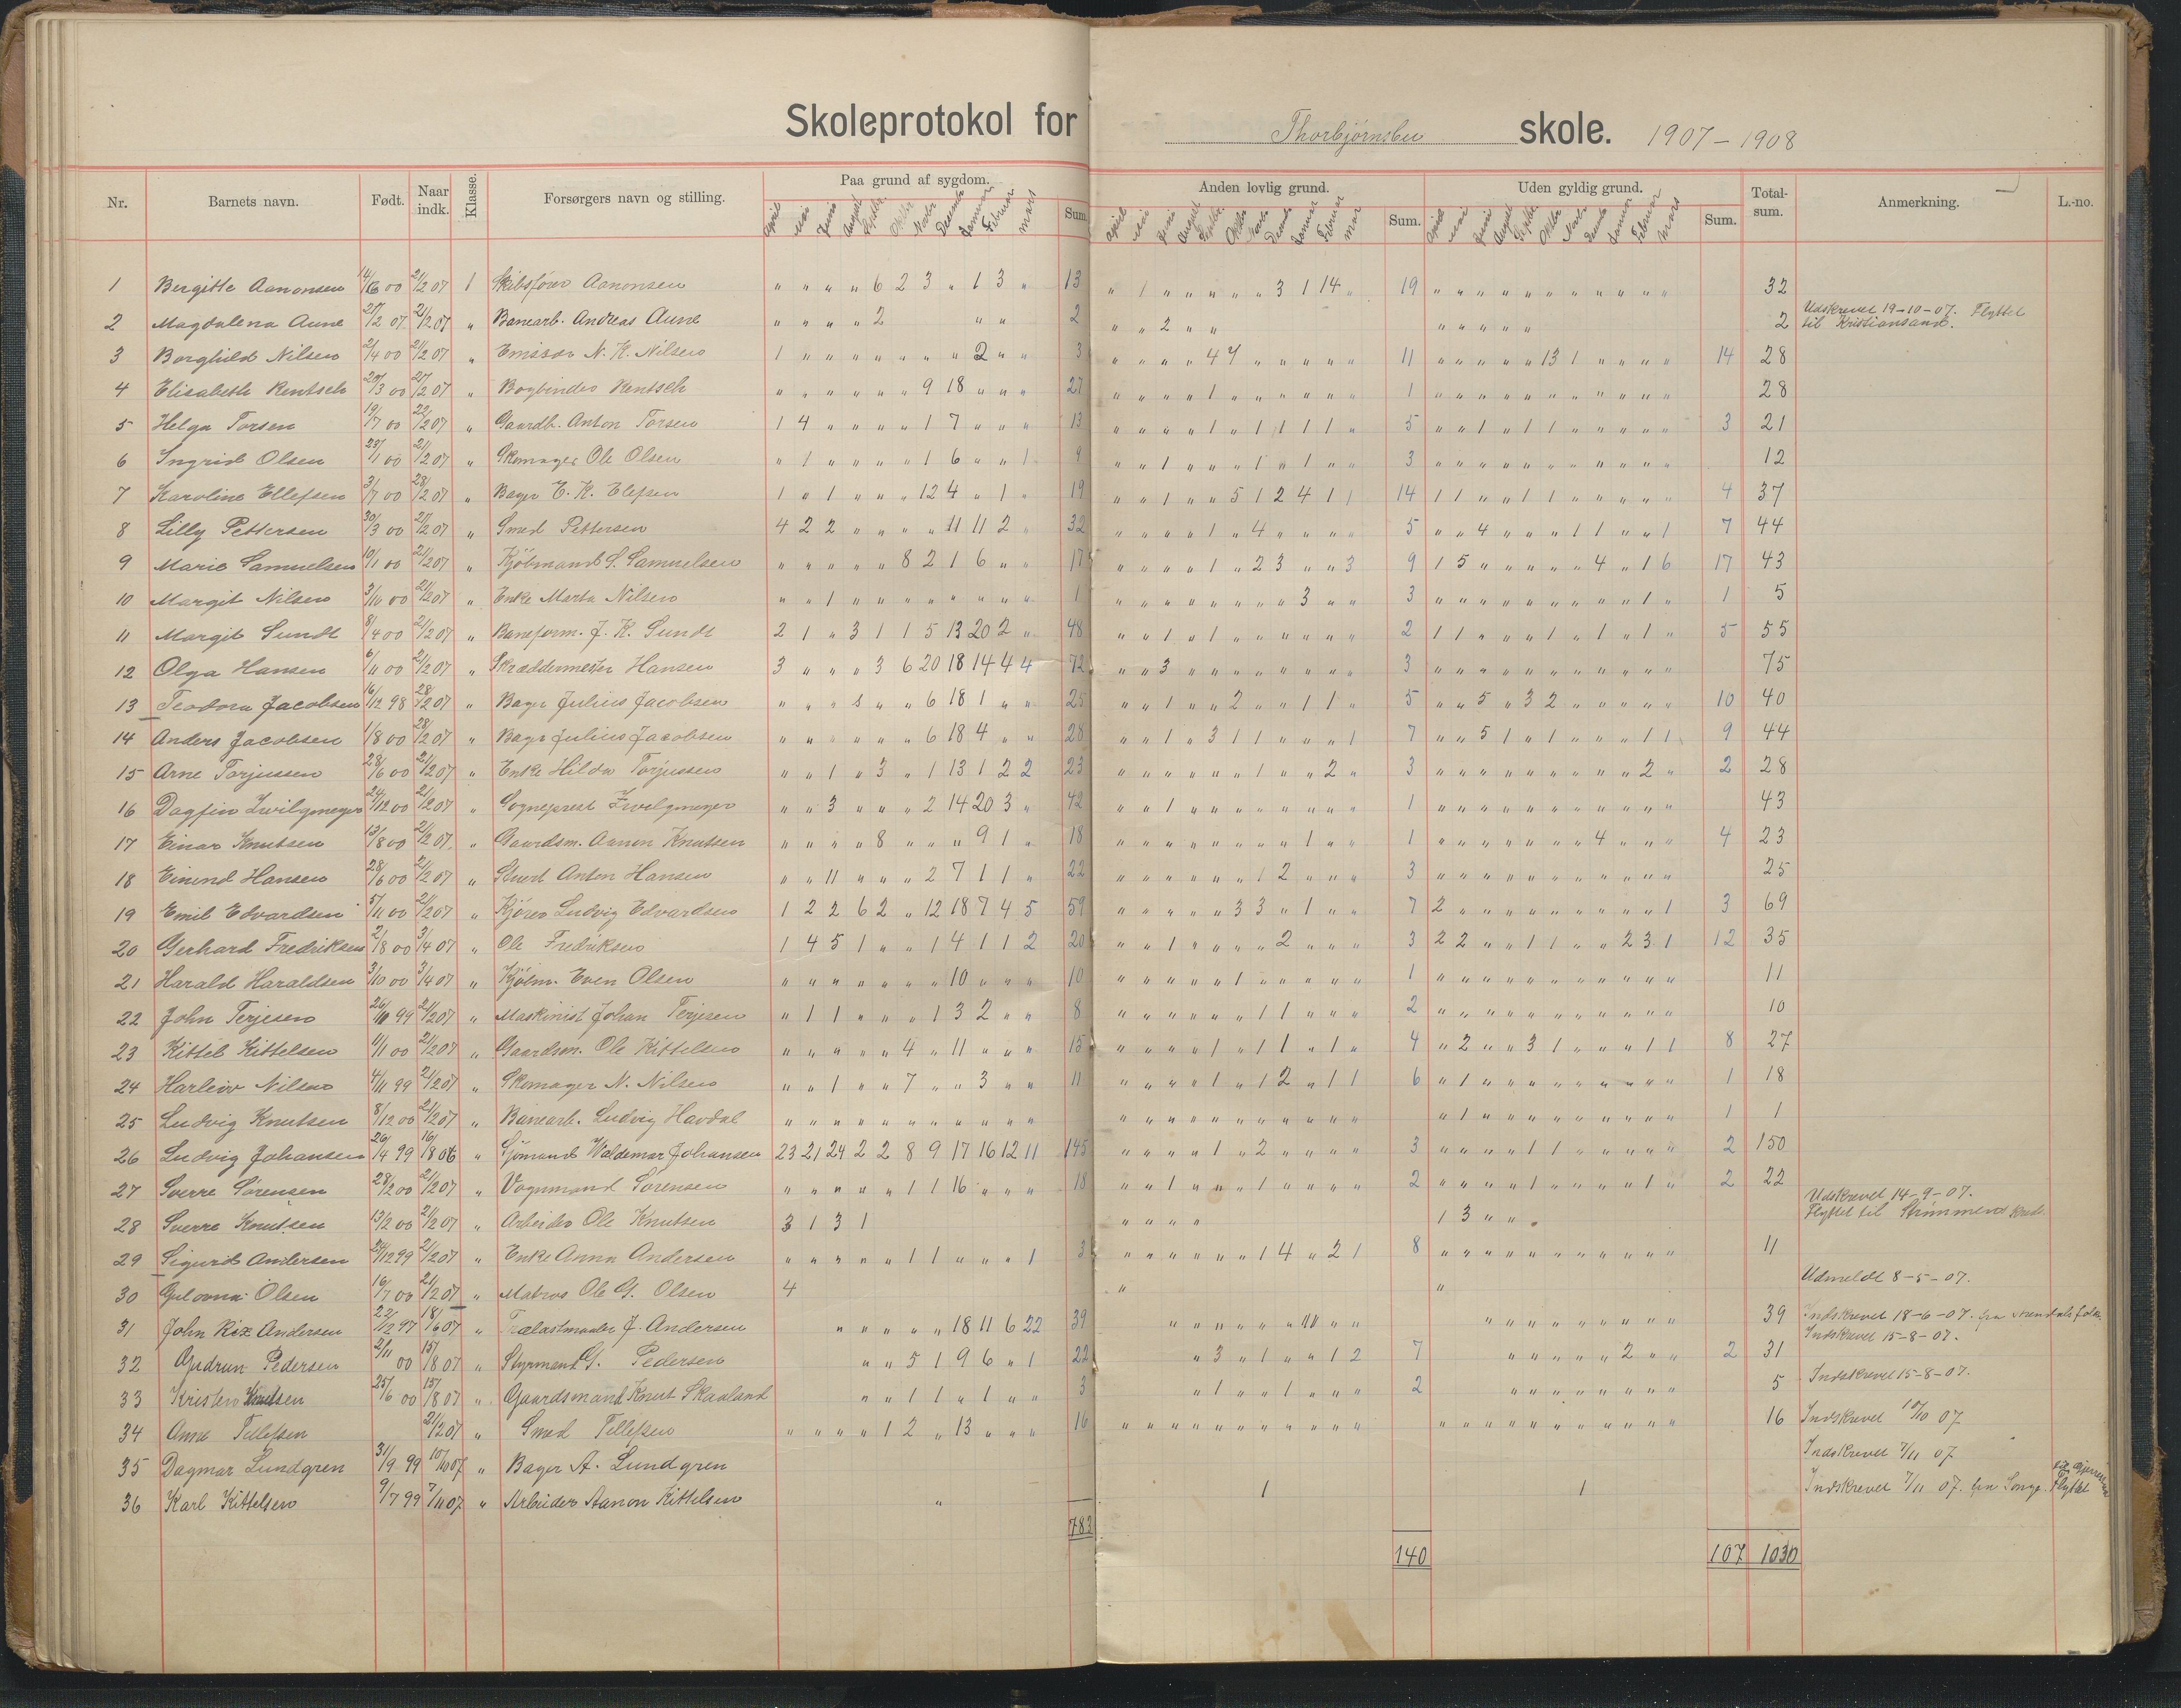 Skoleprotokol for Thorbjørnsbu skole. 1907-1908
Nr. Barnets navn. Født. Naar indk. Klasse. Forsørgers navn og stilling. Paa grund af sygdom. Sum. Anden lovlig grund. Sum. Uden gyldig grund. Sum. Total-sum. Anmerkning. L.-no.
1 Bergitte Aanonsen 2/12 07 1 Skibsfører Aanonsen " " " " 6 2 3 " 1 3 " 13 " 1 " " " " " 3 1 14 " 19 " " " " " " " " " " " 32
2 Magdalena Aune 2/12 07 " Banearb. Andreas Aune " " " " 2 " " 2 " " 2 " " " " " " " 2 Udskrevet 19-10-07. Flyttet til Kristiansand.
3 Borghild Nilsen 2/4 00 2/12 07 " N. K. Nilsen 1 " " " " " " " 2 " " 3 " " " " 4 7 " " " " " 11 " " " " " 13 1 " " " " 14 28
4 Elisabeth Rentsch 29/3 00 " Bogbinder Rentsch " " " " " " 9 18 " " " 27 " " " " 1 " " " " " " 1 " " " " " " " " " " " 28
5 Helga Torsen 19/7 00 " Gaardb. Anton Torsen 1 4 " " " " 1 7 " " " 13 " " " " 1 " 1 1 1 1 " 5 " " 1 " 1 1 " " " " " 3 21
6 Ingrid Olsen 23/1 00 " Skomager Ole Olsen " 1 " " " " 1 6 " " 1 9 " " 1 " " " 1 " 1 " " 3 " " " " " " " " " " " 12
7 Karoline Ellefsen 3/7 00 " Bager E. K. Elefsen 1 " 1 " " " 12 4 " 1 " 19 " " 1 " " 5 1 2 4 1 1 14 1 1 " " 1 1 " " " " " 4 37
8 Lilly Pettersen 30/3 00 " Smed Pettersen 4 2 2 " " " " 11 11 2 " 32 " " " " 1 " 4 " " " " 5 " " 4 " " " 1 1 " " 1 7 44
9 Marie Samuelsen 10/1 00 " Kjøbmand S. Samuelsen " " " " " 8 2 1 6 " " 17 " " " " 1 " 2 3 " " 3 9 1 5 " " " " " 4 " 1 6 17 43
10 Margit Nilsen 3/10 00 " Enke Marta Nilsen " " 1 " " " " " " " " 1 " " " " " " " " 3 " " 3 " " " " " " " " " 1 " 1 5
11 Margit Sundt 8/4 00 " Baneform. J. K. Sundt 2 1 " 3 1 1 5 13 20 2 " 48 " " 1 " 1 " " " " " " 2 1 1 " " " 1 " 1 " 1 " 5 55
12 Olga Hansen 6/11 00 " Skræddermester Hansen 3 " " " 3 6 20 18 14 4 4 72 " " 3 " " " " " " " " 3 " " " " " " " " " " " 75
13 Teodora Jacobsen 16/12 98 " Bager Julius Jacobsen " " " " " 6 18 1 " " 25 " " 1 " " 2 " " 1 1 " 5 " " 5 " 3 2 " " " " " 10 40
14 Anders Jacobsen 1/8 00 " Bager Julius Jacobsen " " " " " " 6 18 4 " " 28 " " 1 " 3 1 1 " " " 1 7 " " 5 1 " 1 " " " 1 1 9 44
15 Arne Torjussen 28/6 00 " Enke Hilda Torjussen " " 1 " 3 " 1 13 1 2 2 23 " " " " " " 1 " " 2 " 3 " " " " " " " " " 2 " 2 28
16 Dagfin Zwilgmeyer 24/12 00 " Sogneprest Zwilgmeyer " " 3 " " " 2 14 20 3 " 42 " " 1 " " " " " " " " 1 " " " " " " " " " " " 43
17 Einar Knutsen 13/8 00 " Gaardsm. Aanon Knutsen " " " " 8 " " " 9 1 " 18 " " " " " " " " 1 " " 1 " " " " " " " 4 " " " 4 23
18 Eivind Hansen 28/6 00 " Stuert Anton Hansen " " 11 " " " 2 7 1 1 " 22 " " " " " " 1 2 " " " 3 " " " " " " " " " " " 25
19 Emil Edvardsen 5/11 00 " Kjører Ludvig Edvardsen 1 2 2 6 2 " 12 18 7 4 5 59 " " " " " 3 3 " 1 " " 7 2 " " " " " " " " " 1 3 69
20 Gerhard Fredriksen 2/8 00 3/4 07 " Ole Fredriksen 1 4 5 1 " " 1 4 1 1 2 20 " " 1 " " " " 2 " " " 3 2 2 " " 1 1 " " 2 3 1 12 35
21 Harald Haraldsen 3/10 00 3/4 07 " Kjøbm. Even Olsen " " " " " " " 10 " " " 10 " " " " " 1 " " " " " 1 " " " " " " " " " " " 11
22 John Terjesen 99 " Maskinist Johan Terjesen " 1 1 " " " 1 3 2 " " 8 " " " " " " 1 1 " " " 2 " " " " " " " " " " " 10
23 Kittel Kittelsen 11/1 00 " Gaardsm. Ole Kittelsen " " " " " 4 " 11 " " " 15 " " " " 1 " 1 1 " 1 " 4 " 2 " " 3 1 " " " 1 1 8 27
24 Harleiv Nilsen 4/11 99 " Skomager N. Nilsen " " 1 " " 7 " " 3 " " 11 " " " " 1 " 1 2 " 1 1 6 " 1 " " " " " " " " " 1 18
25 Ludvig Knutsen 8/12 00 " Banearb. Ludvig Havdal " " " " " " " " " " " " " " " " " " " " " " " 1 " " " " " " " " " 1 1
26 Ludvig Johansen 26/4 99 16/8 06 " Sjømand Waldemar Johansen 23 21 24 2 2 8 9 17 16 12 11 145 " " " " 1 " 2 " " " " 3 " " " " 1 1 " " " " " 2 150
27 Sverre Sørensen 28/2 00 " Vognmand Sørensen " " " " " 1 1 16 " " " 18 " " 1 " " 1 " " " " " 2 " " " " 1 " " " " 1 " 2 22
28 Sverre Knutsen 13/2 00 " Arbeider Ole Knutsen 3 1 3 1 " " " " 1 3 " " " Udskrevet 14-9-07. Flyttet til Strømmen
29 Sigurd Andersen 99 " Enke Anna Andersen " " " " " 1 1 " " " 1 3 " " " " " " 1 4 " 2 1 8 " " " " " " " " " " " 11
30 Olsen 16/7 00 " Matros Ole G. Olsen 4 " " Udmeldt 8-5-07.
31 John Andersen 22/12 97 18/6 07 " J. Andersen " " " " " 18 11 6 22 39 " " " " " " 10 " " " " " " " " " " " 39 Indskrevet 18-6-07. fra
32 Gudrun Pedersen 2/11 00 15/8 07 " Styrmand G. Pedersen " " 5 1 9 6 " 1 22 " 3 " 1 " " 1 2 7 " " " " " 2 " " 2 31 Indskrevet 15-8-07.
33 Kristen Knutsen 25/6 00 15/8 07 " Gaardsmand Knut Skaaland " " 1 1 " 1 " " 3 " 1 " " 1 " " " 2 " " " " " " " " 5 Indskrevet 15-8-07.
34 Anna Tellefsen " Smed Tellefsen " " " " 1 2 " 13 " " " 16 " " " " " " " " " " " " " " " " " " " " " " 16 Indskrevet 07
35 Dagmar Lundgren 31/9 99 10/10 07 " Bager A. Lundgren Indskrevet 7/11 07
36 Karl Kittelsen 9/7 99 7/11 07 " Arbeider Aanon Kittelsen " 1 1 Indskrevet 7/11 07. fra Songe. Flyttet
783 140 107 1030